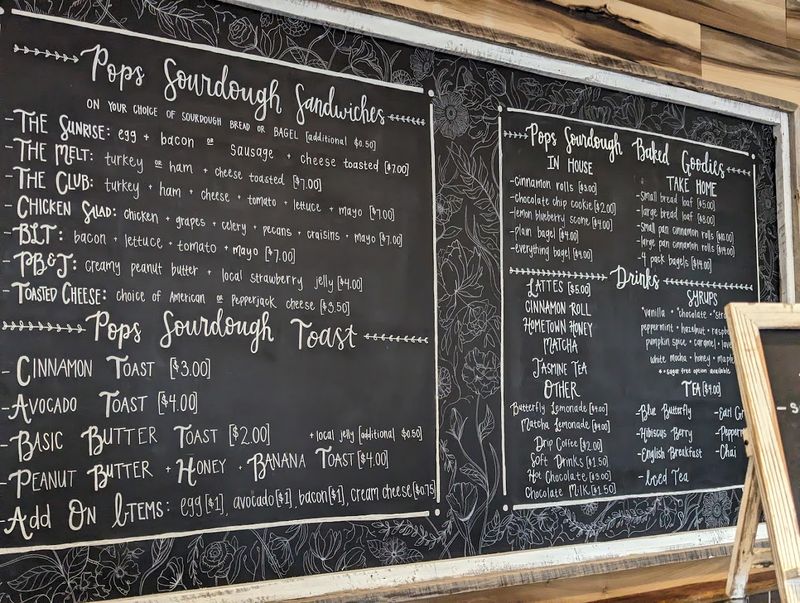 Pops Sourdough Sandwiches
ON YOUR CHOICE OF SOURDOUGH BREAD OR BAGEL [additional $0.50]
- THE SUNRISE: egg + bacon or sausage + cheese toasted [$7.00]
- THE MELT: turkey or ham + cheese toasted [$7.00]
- THE CLUB: turkey + ham + cheese + tomato + lettuce + mayo [$7.00]
- CHICKEN SALAD: chicken + grapes + celery + pecans + craisins + mayo [$7.00]
- BLT: bacon + lettuce + tomato + mayo [$7.00]
- PB&J: creamy peanut butter + local strawberry jelly [$4.00]
- TOASTED CHEESE: choice of American or Pepperjack cheese [$3.50]
Pops Sourdough Toast
- CINNAMON TOAST [$3.00]
- AVOCADO TOAST [$4.00]
- BASIC BUTTER TOAST [$2.00] +local jelly [additional $0.50]
- PEANUT BUTTER + HONEY + BANANA TOAST [$4.00]
- Add On Items: egg [$1], avocado [$1], bacon [$1], cream cheese [$0.75
Pops Sourdough Baked Goodies
IN HOUSE
-cinnamon rolls [$3.00]
-chocolate chip cookie [$2.00]
-lemon blueberry scone [$4.00]
-plain bagel [$4.00]
-everything bagel [$4.00]
TAKE HOME
-small bread loaf [$5.00]
-large bread loaf [$8.00]
-small pan cinnamon rolls
-large pan cinnamon rolls
-4 pack bagels [$14.00]
Drinks
LATTES [$5.00]
CINNAMON ROLL
HOMETOWN HONEY
MATCHA
JASMINE TEA
OTHER
Butterfly Lemonade [$4.00]
Matcha Lemonade [$4.00]
Drip Coffee [$2.00]
Soft Drinks [$1.50]
Hot Chocolate [$3.00]
Chocolate Milk [$1.50]
SYRUPS
vanilla • chocolate •
peppermint • hazelnut •
pumpkin spice • caramel •
white mocha • honey • maple
**sugar free option available
TEA [$4.00]
-Blue Butterfly
-Hibiscus Berry
-English Breakfast
-Iced Tea
-Earl
-Chai